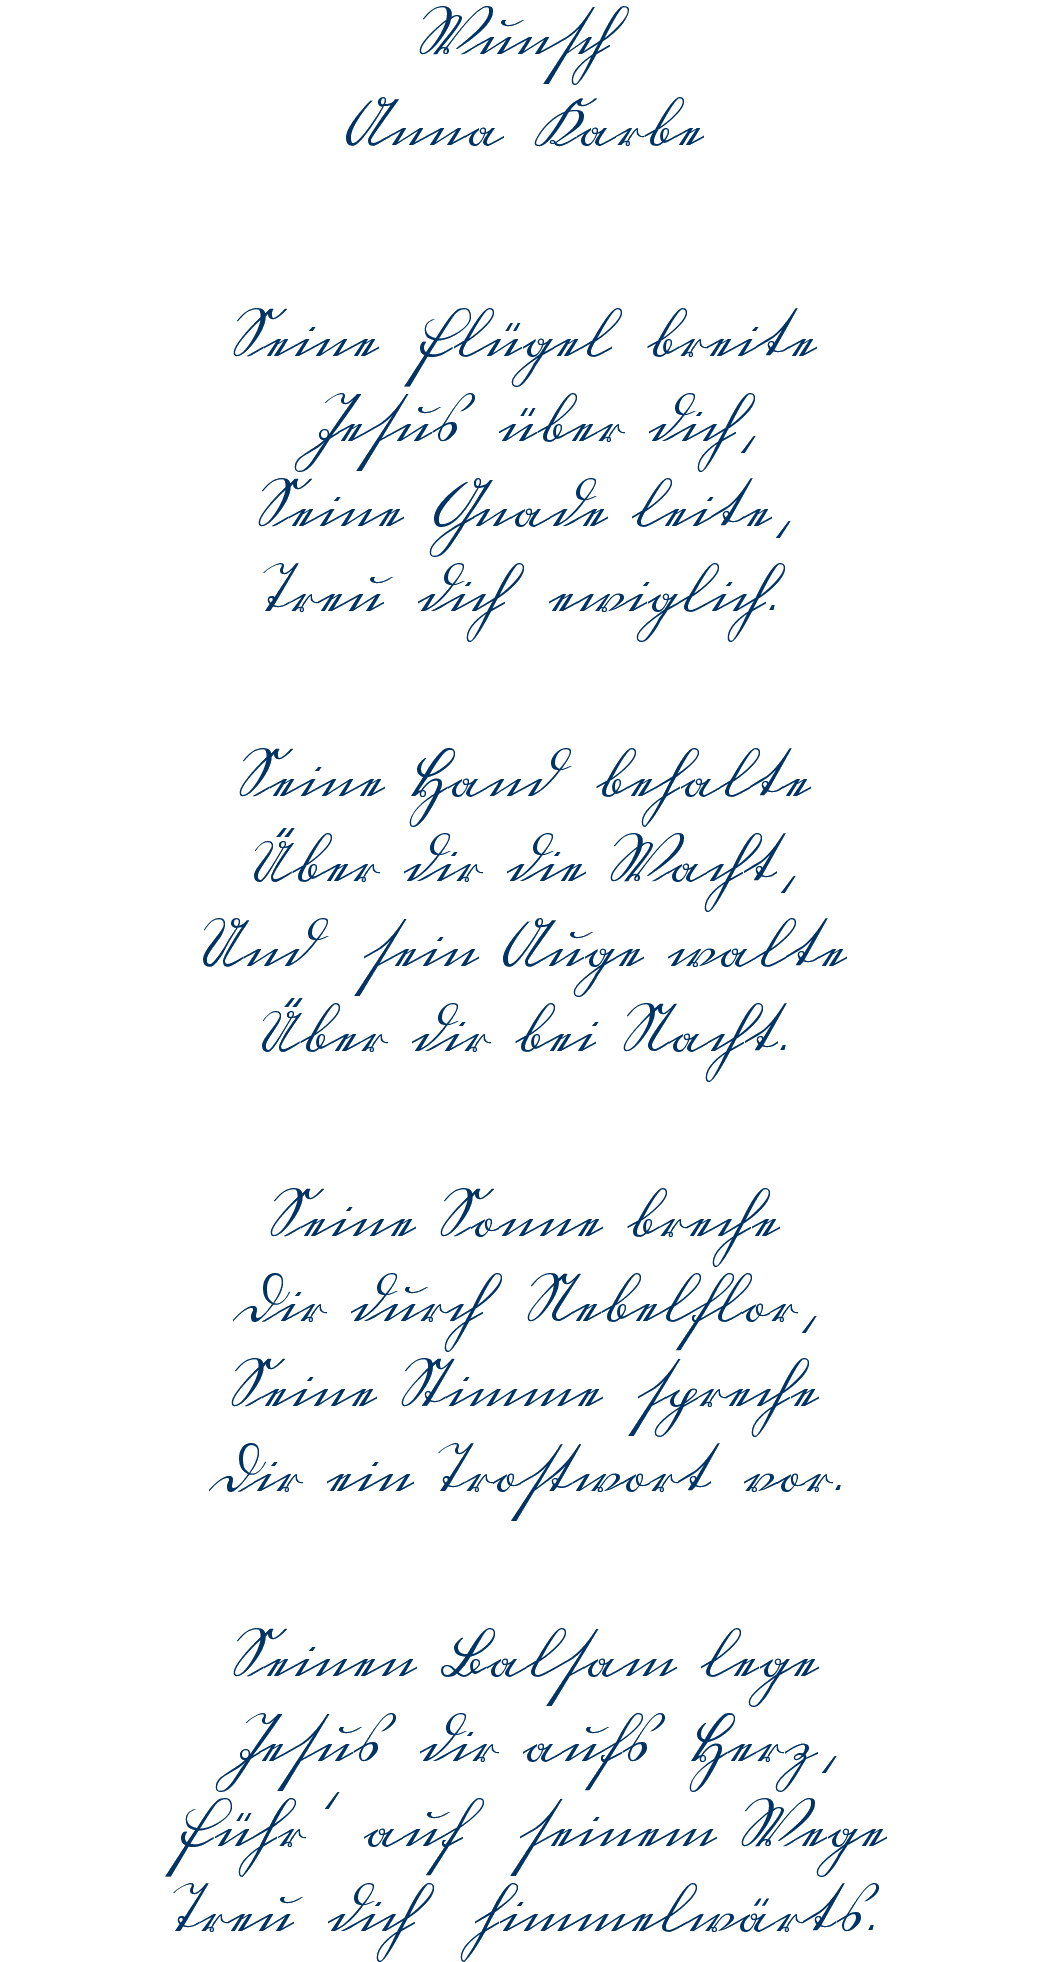 Wunsch
Anna Karbe
Seine Flügel breite
Jesus über dich,
Seine Gnade leite,
Treu dich ewiglich.
Seine Hand behalte
Über dir die Wacht,
Und sein Auge walte
Über dir bei Nacht.
Seine Sonne breche
Dir durch Nebelflor,
Seine Stimme spreche
Dir ein Trostwort vor.
Seinen Balsam lege
Jesus dir aufs Herz,
Führ' auf seinem Wege
Treu dich himmelwärts.